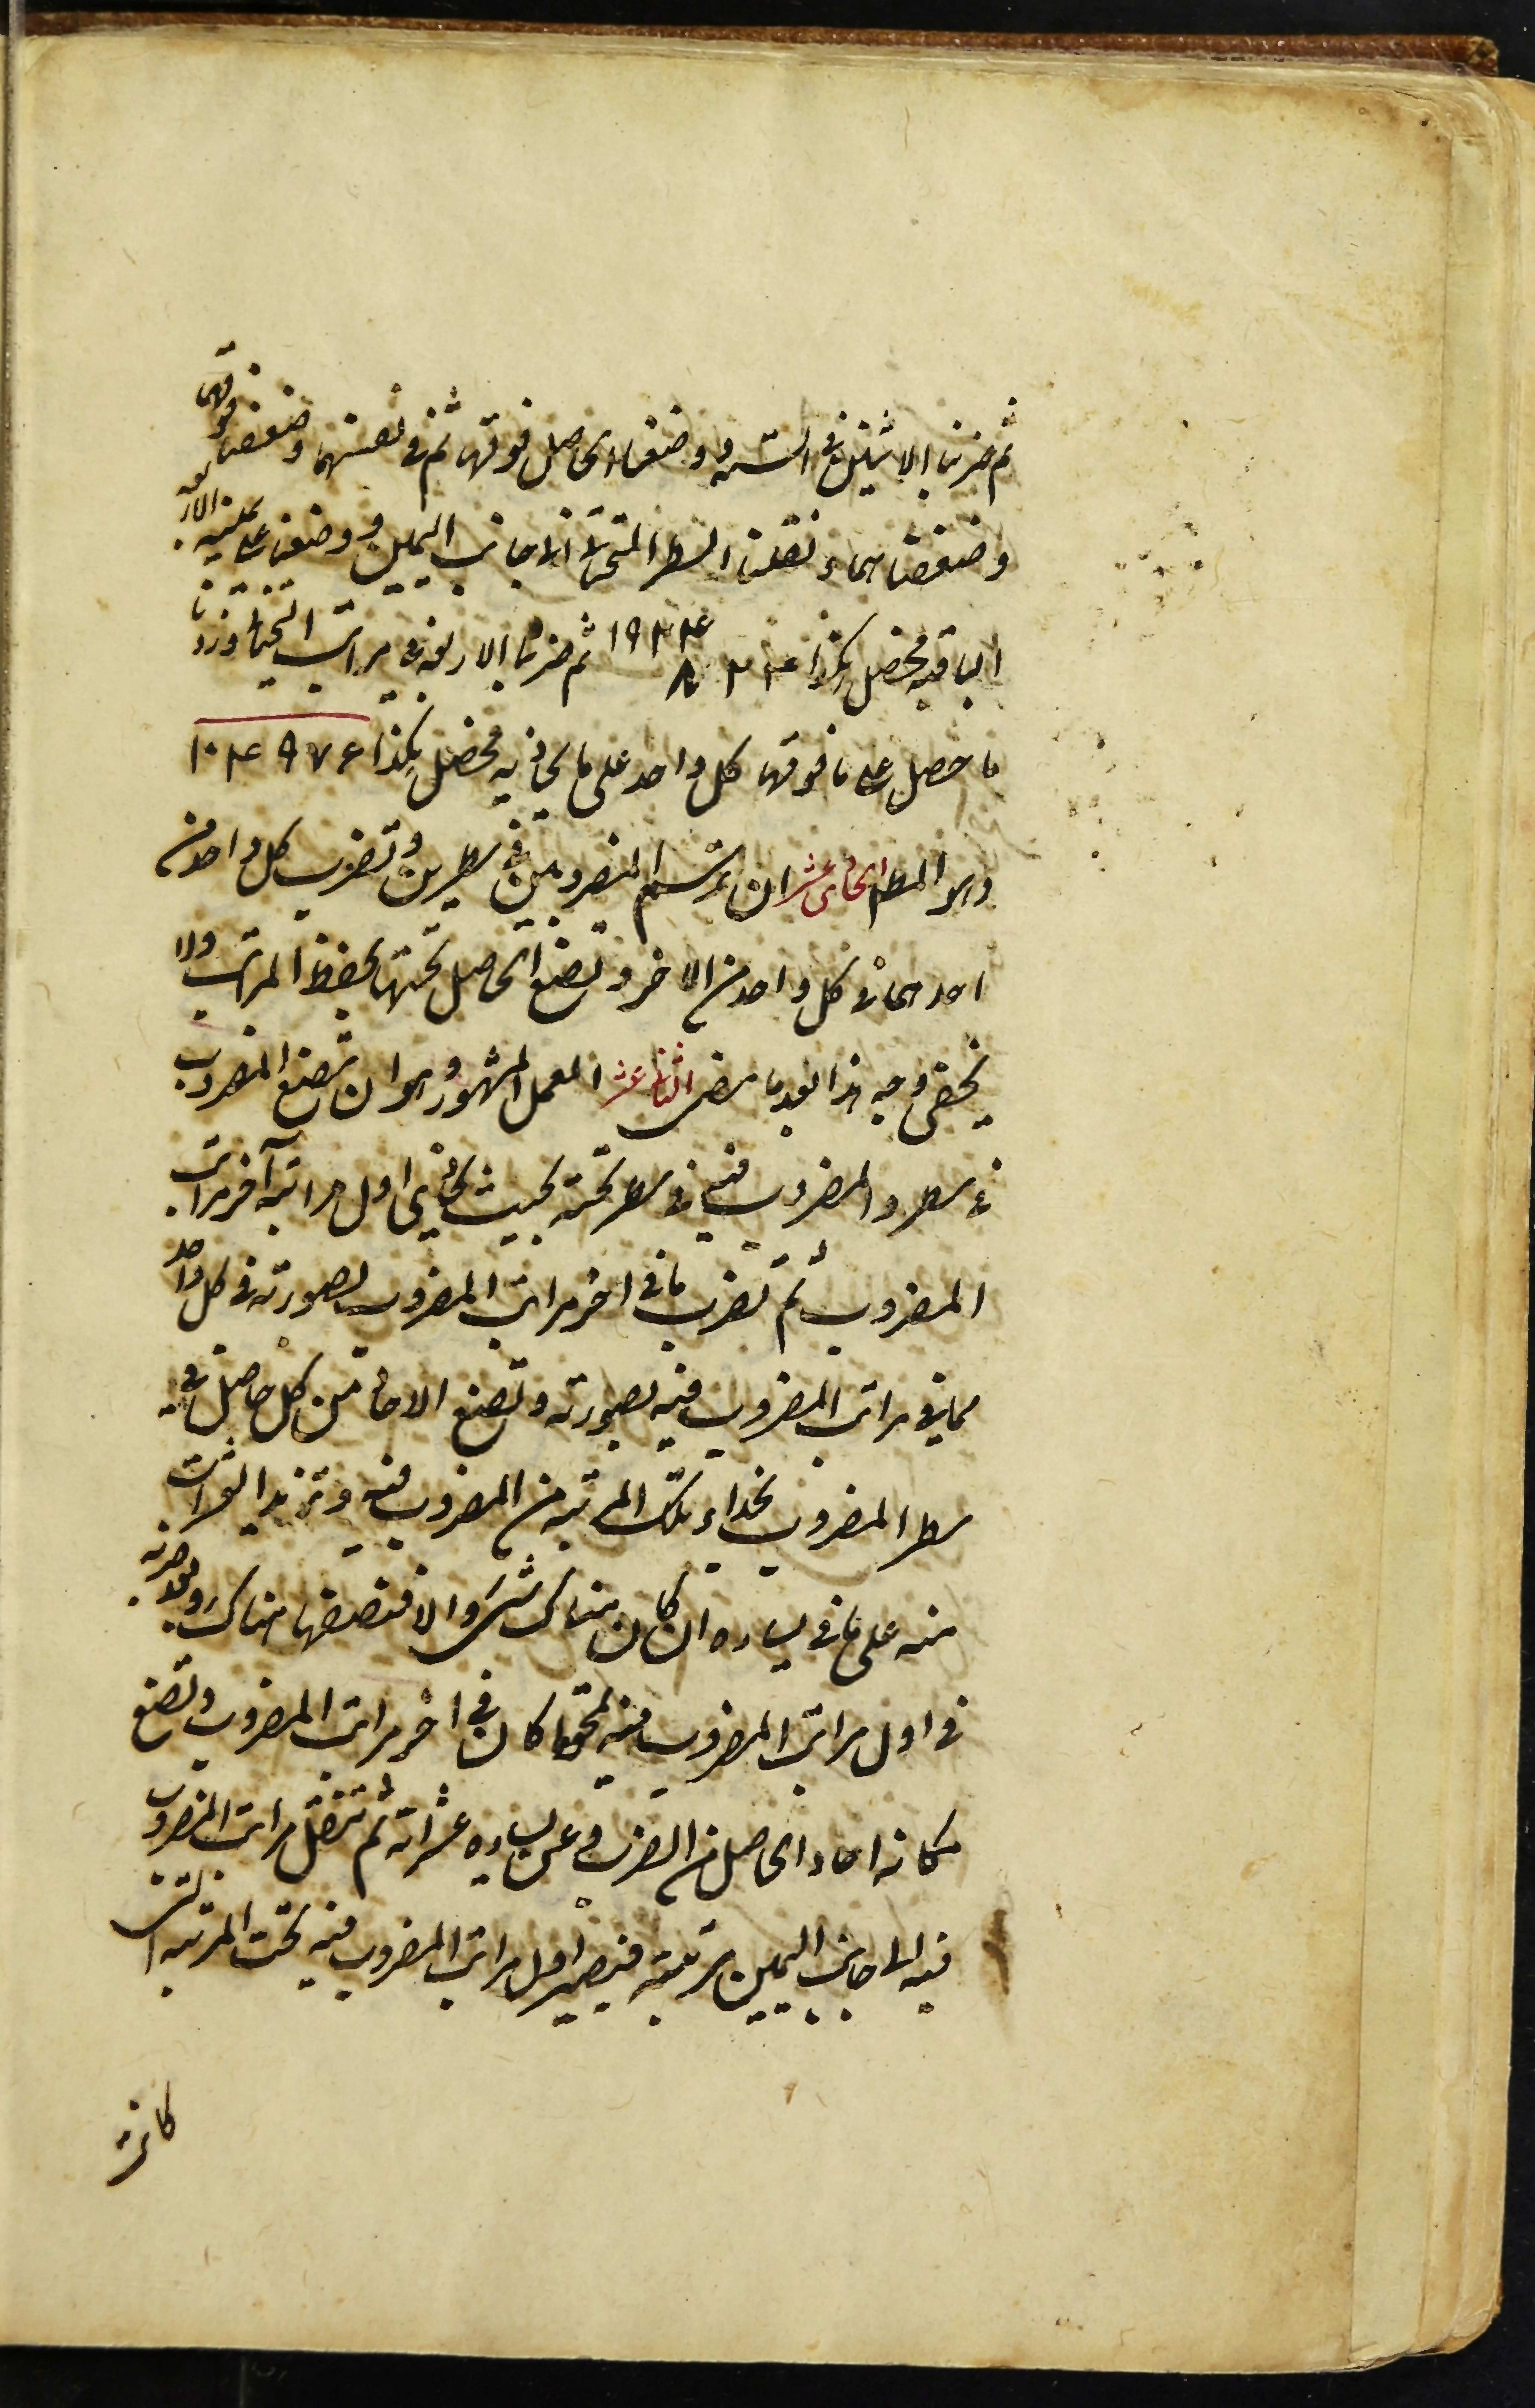 ثم ضربنا الاثنين فى الستة ووضعنا الحاصل فوقها ثم فى نفسها وضعفنا فوقها
وضعفناهما و نقلنا السطر التحتانى الى جانب اليمين ووضعنا على يمينه الاربعة
الباقية فحصل هكذا ١٩٣٤٤ ٨ ٢ ٤ ثم ضربنا الاربعة فى مراتب التحتانى وزدنا
ما حصل على ما فوقها كل واحد على ما يحاذيه فحصل هكذا ١٠٤٩٧٦
وهو المط الحادى عشر ان ترسم المضروبين فى سطرين وتضرب كل واحد من
احدهما فى كل واحد من الاخر وتضع الحاصل تحتها بحفظ المراتب ولا
يخفى وجه هذا بعد ما مضى الثانى عشر العمل المشهور وهو ان تضع المضروب
فى سطر والمضروب فيه فى سطر تحته بحيث يحاذى اول مراتبه آخر مراتب
المضروب ثم تضرب ما فى اخر مراتب المضروب بصورته فى كل واحد
مما فى مراتب المضروب فيه بصورته وتضع الاحاد من كل حاصل فى
سطر المضروب بحذاء تلك المرتبة من المضروب فيه وتزيد العشرات
منه على ما فى يساره ان كان هناك شىء والا فتضعها هناك وبعد ضربه
فى اول مراتب المضروب فيه تمحو ما كان فى اخر مراتب المضروب وتضع
مكانه احاد الحاصل من الضرب وعن يساره عشراته ثم تنقل مراتب المضروب
فيه الى جانب اليمين مرتبة فيصير اول مراتب المضروب فيه تحت المرتبة التى
كانت